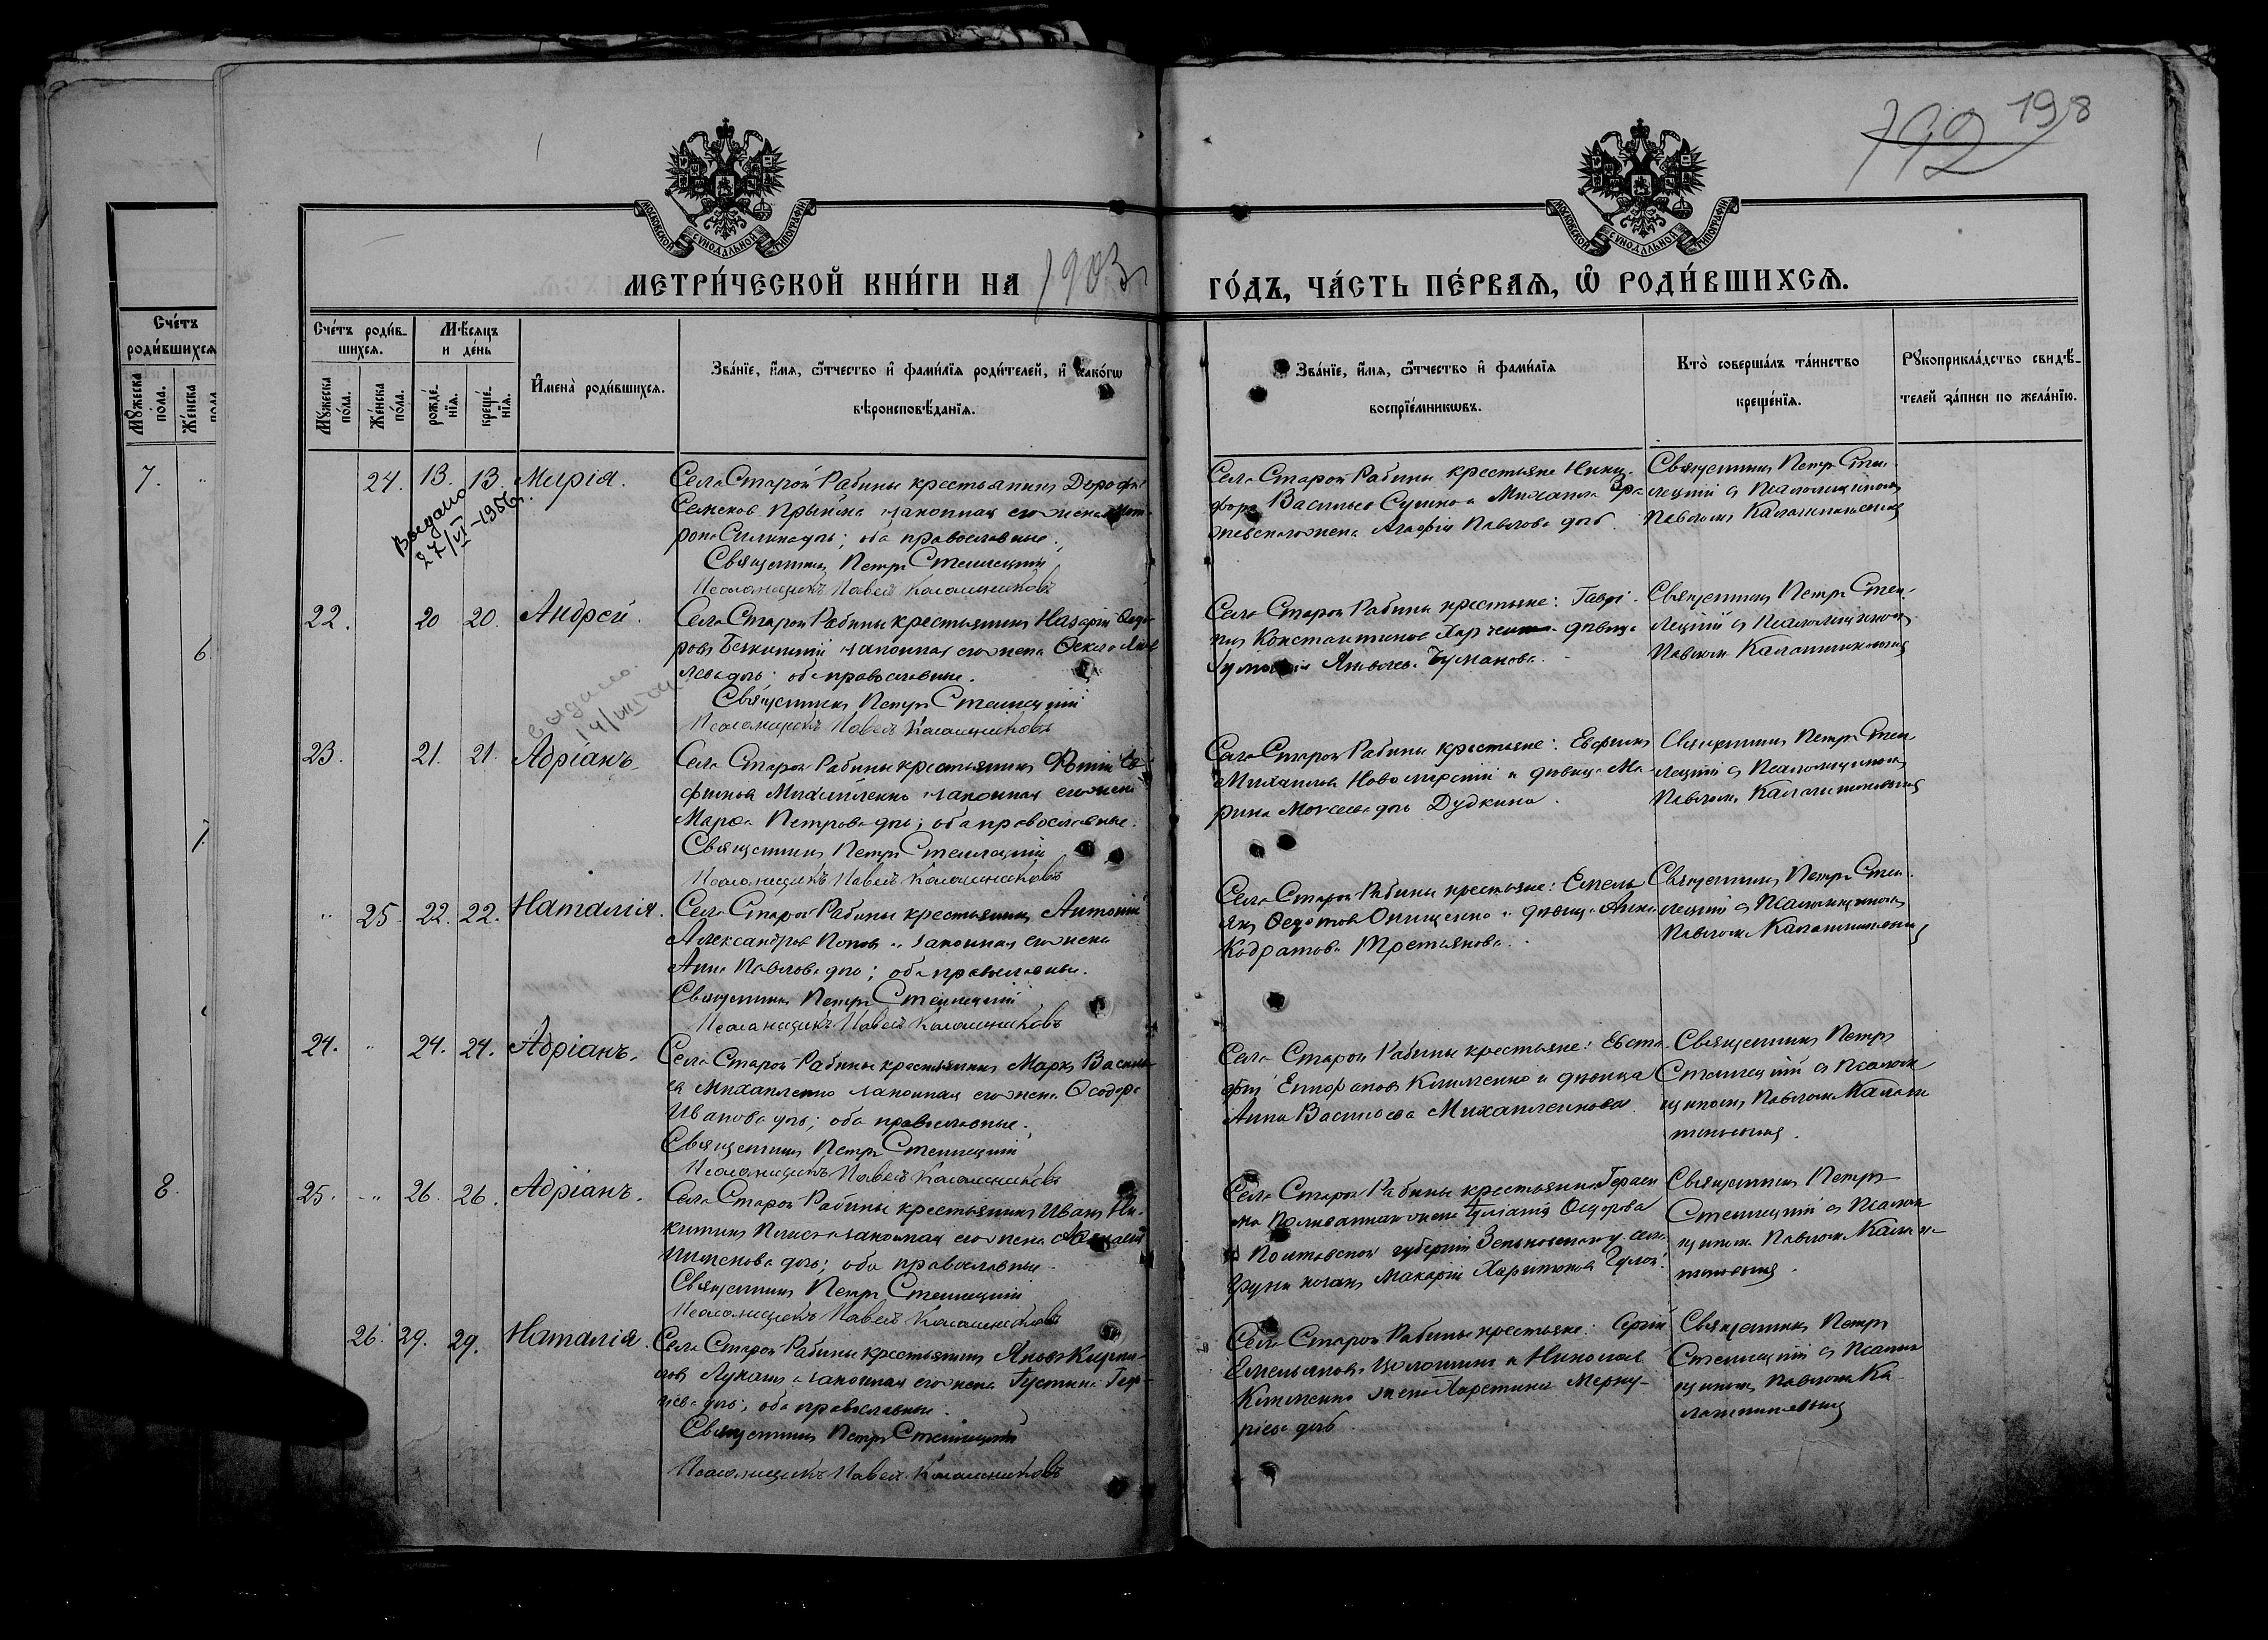 198
192
МОСКОВСКОЙ СѴНОДАЛЬНОЙ ТИПОГРАФІИ
МОСКОВСКОЙ СѴНОДАЛЬНОЙ ТИПОГРАФІИ
МЕТРИ́ЧЕСКОЙ КНИ́ГИ НА 1903
ГО́ДЪ, ЧА́СТЬ ПЕ́РВАѦ, Ѡ҆ РОДИ́ВШИХСѦ.
Сче́тъ
роди́вшихсѧ
Мꙋ́жеска
по́ла.
Же́нска
7.
6
7.
8.
Сче́тъ роди́в-
шихсѧ.
Мѣ́сѧцъ
и де́нь
Мꙋ́жеска
по́ла.
Же́нска
по́ла.
рожде́-
нїѧ.
креще́-
нїѧ.
И҆мена̀ роди́вшихсѧ.
Зва́нїе, и҆́мѧ, ѻ҆́тчество и҆ фами́лїѧ роди́телей, и҆ како́гѡ
вѣроисповѣ́данїѧ.
Зва́нїе, и҆́мѧ, ѻ҆́тчество и҆ фами́лїѧ
воспрїе́мникѡвъ.
Кто̀ соверша́лъ та́инство
креще́нїѧ.
Рꙋкоприкла́дство свидѣ́-
телей за́писи по жела́нїю.
24. 13. 13. Марія.
Выдано
27/VI-1956г.
Села Старой Рябины крестьянинъ Дороѳей
Семеновъ законная его жена
дочь; оба православные.
Священникъ Петръ Стеллецкій
Псаломщикъ Павелъ Калашниковъ
Села Старой Рябины крестьяне Ники-
форъ Васильевъ и Михаила
жена Агафія Павлова дочь.
Священникъ Петръ Стел-
лецкій съ Псаломщикомъ
Павломъ Калашниковымъ
22. 20 20. Андрей.
Села Старой Рябины крестьянинъ Назарій Ѳедо-
ровъ законная его жена Ѳекла Яков
лева дочь; оба православные.
Священникъ Петръ Стеллецкій
Псаломщикъ Павелъ Калашниковъ
Села Старой Рябины крестьяне: Гаврі-
илъ Константиновъ дѣвица
Яковлева Чуманова.
Священникъ Петръ Стел-
лецкій съ Псаломщикомъ
Павломъ Калашниковымъ
выдано
14/VIII
23. 21. 21. Адріанъ.
Села Старой Рябины крестьянинъ Фотій Ев-
фимовъ Михайленко законная его жена
Марѳа Петрова дочь; оба православные.
Священникъ Петръ Стеллецкій
Псаломщикъ Павелъ Калашниковъ
Села Старой Рябины крестьяне: Евфимъ
Михаиловъ и дѣвица Ма-
рина Моисеева дочь Дудкина.
Священникъ Петръ Стел
лецкій съ Псаломщикомъ
Павломъ Калашниковымъ
" 25. 22. 22. Наталія.
Села Старой Рябины крестьянинъ Антоній
Александровъ Поповъ и законная его жена
Анна Павлова дочь; оба православные.
Священникъ Петръ Стеллецкій
Псаломщикъ Павелъ Калашниковъ
Села Старой Рябины крестьяне: Емель
янъ Ѳедотовъ Онищенко и дѣвица Анна
Кодратова Третьякова.
Священникъ Петръ Стел-
лецкій съ Псаломщикомъ
Павломъ Калашниковымъ
24. " 24. 24. Адріанъ.
Села Старой Рябины крестьянинъ Маркъ Василь
евъ Михайленко законная его жена Ѳеодора
Иванова дочь; оба православные.
Священникъ Петръ Стеллецкій
Псаломщикъ Павелъ Калашниковъ
Села Старой Рябины крестьяне: Евста-
фій Клименко и дѣвица
Анна Васильева Михайленкова.
Священникъ Петръ
Стеллецкій съ Псалом
щикомъ Павломъ Калаш
никовымъ.
25. " 26. 26. Адріанъ.
Села Старой Рябины крестьянинъ Иванъ Ни-
китинъ законная его жена
Пименова дочь; оба православные.
Священникъ Петръ Стеллецкій
Псаломщикъ Павелъ Калашниковъ
Села Старой Рябины крестьянина Гераси
ма жена Іуліанія Ѳедорова
и Полтавской губерніи Зеньковскаго у. села
Груни казакъ Макарій Харитоновъ
Священникъ Петръ
Стеллецкій съ Псалом
щикомъ Павломъ Калаш-
никовымъ.
26. 29. 29. Наталія.
Села Старой Рябины крестьянинъ Яковъ Кирил-
ловъ Лукашъ и законная его жена Іустина Геор-
гіева дочь; оба православные.
Священникъ Петръ Стеллецкій
Псаломщикъ Павелъ Калашниковъ
Села Старой Рябины крестьяне: Сергій
Емельяновъ и Николая
Клименко жена Харитина Мерку-
ріева дочь.
Священникъ Петръ
Стеллецкій съ Псалом
щикомъ Павломъ Ка
лашниковымъ